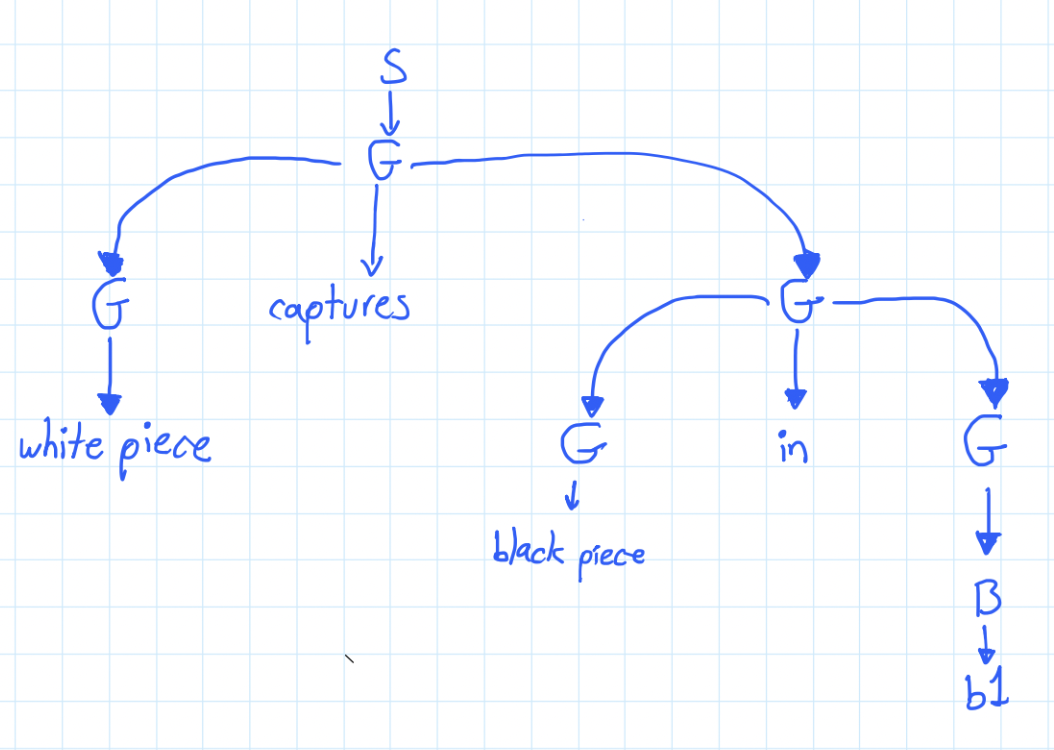 S
G
G captures G
white piece G in G
black piece B
b1